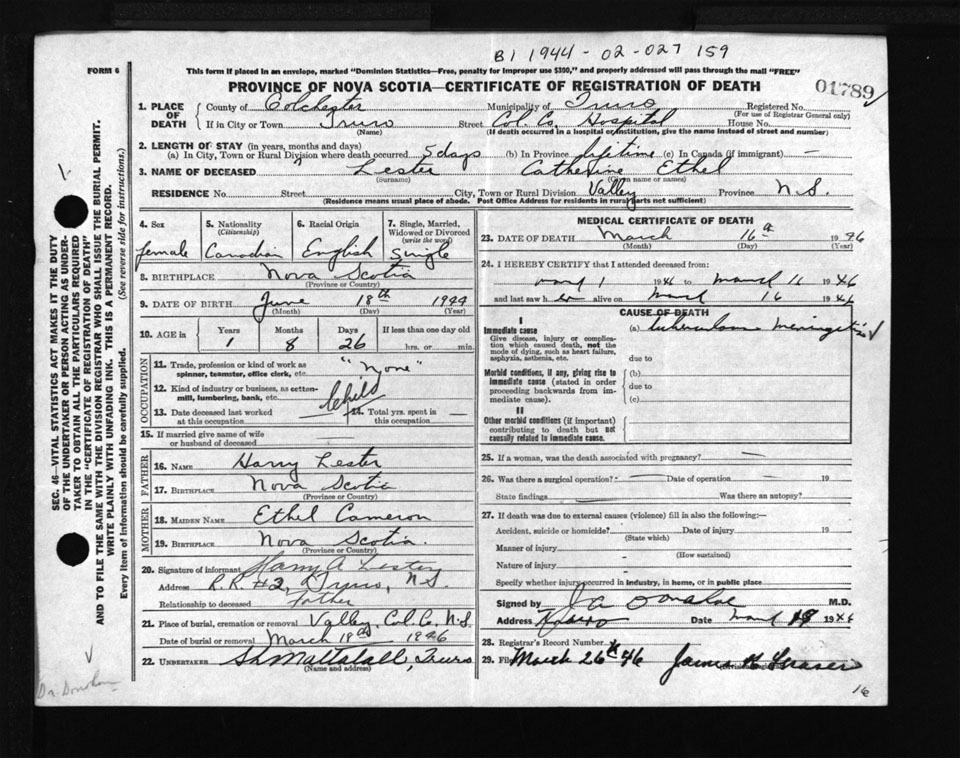 B1 1944-02-027159
FORM 6
This form if placed in an envelope, marked "Dominion Statistics—Free, penalty for improper use $300," and properly addressed will pass through the mail "FREE"
PROVINCE OF NOVA SCOTIA—CERTIFICATE OF REGISTRATION OF DEATH
01789
1. PLACE OF DEATH County of Colchester Municipality of Truro Registered No.
(For use of Registrar General only)
If in City or Town Truro Street Col. Co. Hospital House No.
(Name) (If death occurred in a hospital or institution, give the name instead of street and number)
2. LENGTH OF STAY (in years, months and days)
(a) In City, Town or Rural Division where death occurred 5 days (b) In Province lifetime (c) In Canada (if immigrant) —
3. NAME OF DECEASED Lester Catherine Ethel
(Surname) (Given name or names)
RESIDENCE No. Street City, Town or Rural Division Valley Province N.S.
(Residence means usual place of abode. Post Office Address for residents in rural parts not sufficient)
4. Sex 5. Nationality 6. Racial Origin 7. Single, Married,
(Citizenship) Widowed or Divorced
(write the word)
female Canadian English Single
8. BIRTHPLACE Nova Scotia
(Province or Country)
9. DATE OF BIRTH June 18th 1944
(Month) (Day) (Year)
10. AGE in Years Months Days If less than one day old
1 8 26 hrs. or min.
OCCUPATION
11. Trade, profession or kind of work as
spinner, teamster, office clerk, etc. "None"
12. Kind of industry or business, as cotten-
mill, lumbering, bank, etc. Child
13. Date deceased last worked
at this occupation
14. Total yrs. spent in
this occupation
15. If married give name of wife
or husband of deceased
FATHER
16. NAME Harry Lester
17. BIRTHPLACE Nova Scotia
(Province or Country)
MOTHER
18. MAIDEN NAME Ethel Cameron
19. BIRTHPLACE Nova Scotia.
(Province or Country)
20. Signature of informant Harry A Lester
Address R.R. #2, Truro, N.S.
Relationship to deceased Father
21. Place of burial, cremation or removal Valley, Col. Co, N.S.
Date of burial or removal March 19th 1946
22. UNDERTAKER Mattatall, Truro
(Name and address)
MEDICAL CERTIFICATE OF DEATH
23. DATE OF DEATH March 16th 1946
(Month) (Day) (Year)
24. I HEREBY CERTIFY that I attended deceased from:
1 1946 to March 16 1946
and last saw her alive on March 16 1946
CAUSE OF DEATH
I
Immediate cause (a) tuberculous Meningitis
Give disease, injury or complica-
tion which caused death, not the
mode of dying, such as heart failure,
asphyxia, asthenia, etc. due to
Morbid conditions, if any, giving rise to (b)
immediate cause (stated in order due to
proceeding backwards from im-
mediate cause). (c)
II
Other morbid conditions (if important)
contributing to death but not
causally related to immediate cause.
25. If a woman, was the death associated with pregnancy? —
26. Was there a surgical operation? — Date of operation — 19
State findings Was there an autopsy?
27. If death was due to external causes (violence) fill in also the following:—
Accident, suicide or homicide? Date of injury 19
(State which)
Manner of injury
(How sustained)
Nature of injury
Specify whether injury occurred in industry, in home, or in public place
Signed by M.D.
Address Truro Date March 19 1946
28. Registrar's Record Number
29. Filed March 26th 46 James Fraser
16
SEC. 46—VITAL STATISTICS ACT MAKES IT THE DUTY
OF THE UNDERTAKER OR PERSON ACTING AS UNDER-
TAKER TO OBTAIN ALL THE PARTICULARS REQUIRED
IN THE "CERTIFICATE OF REGISTRATION OF DEATH"
AND TO FILE THE SAME WITH THE DIVISION REGISTRAR WHO SHALL ISSUE THE BURIAL PERMIT.
WRITE PLAINLY WITH UNFADING INK. THIS IS A PERMANENT RECORD.
Every item of information should be carefully supplied. (See reverse side for instructions.)